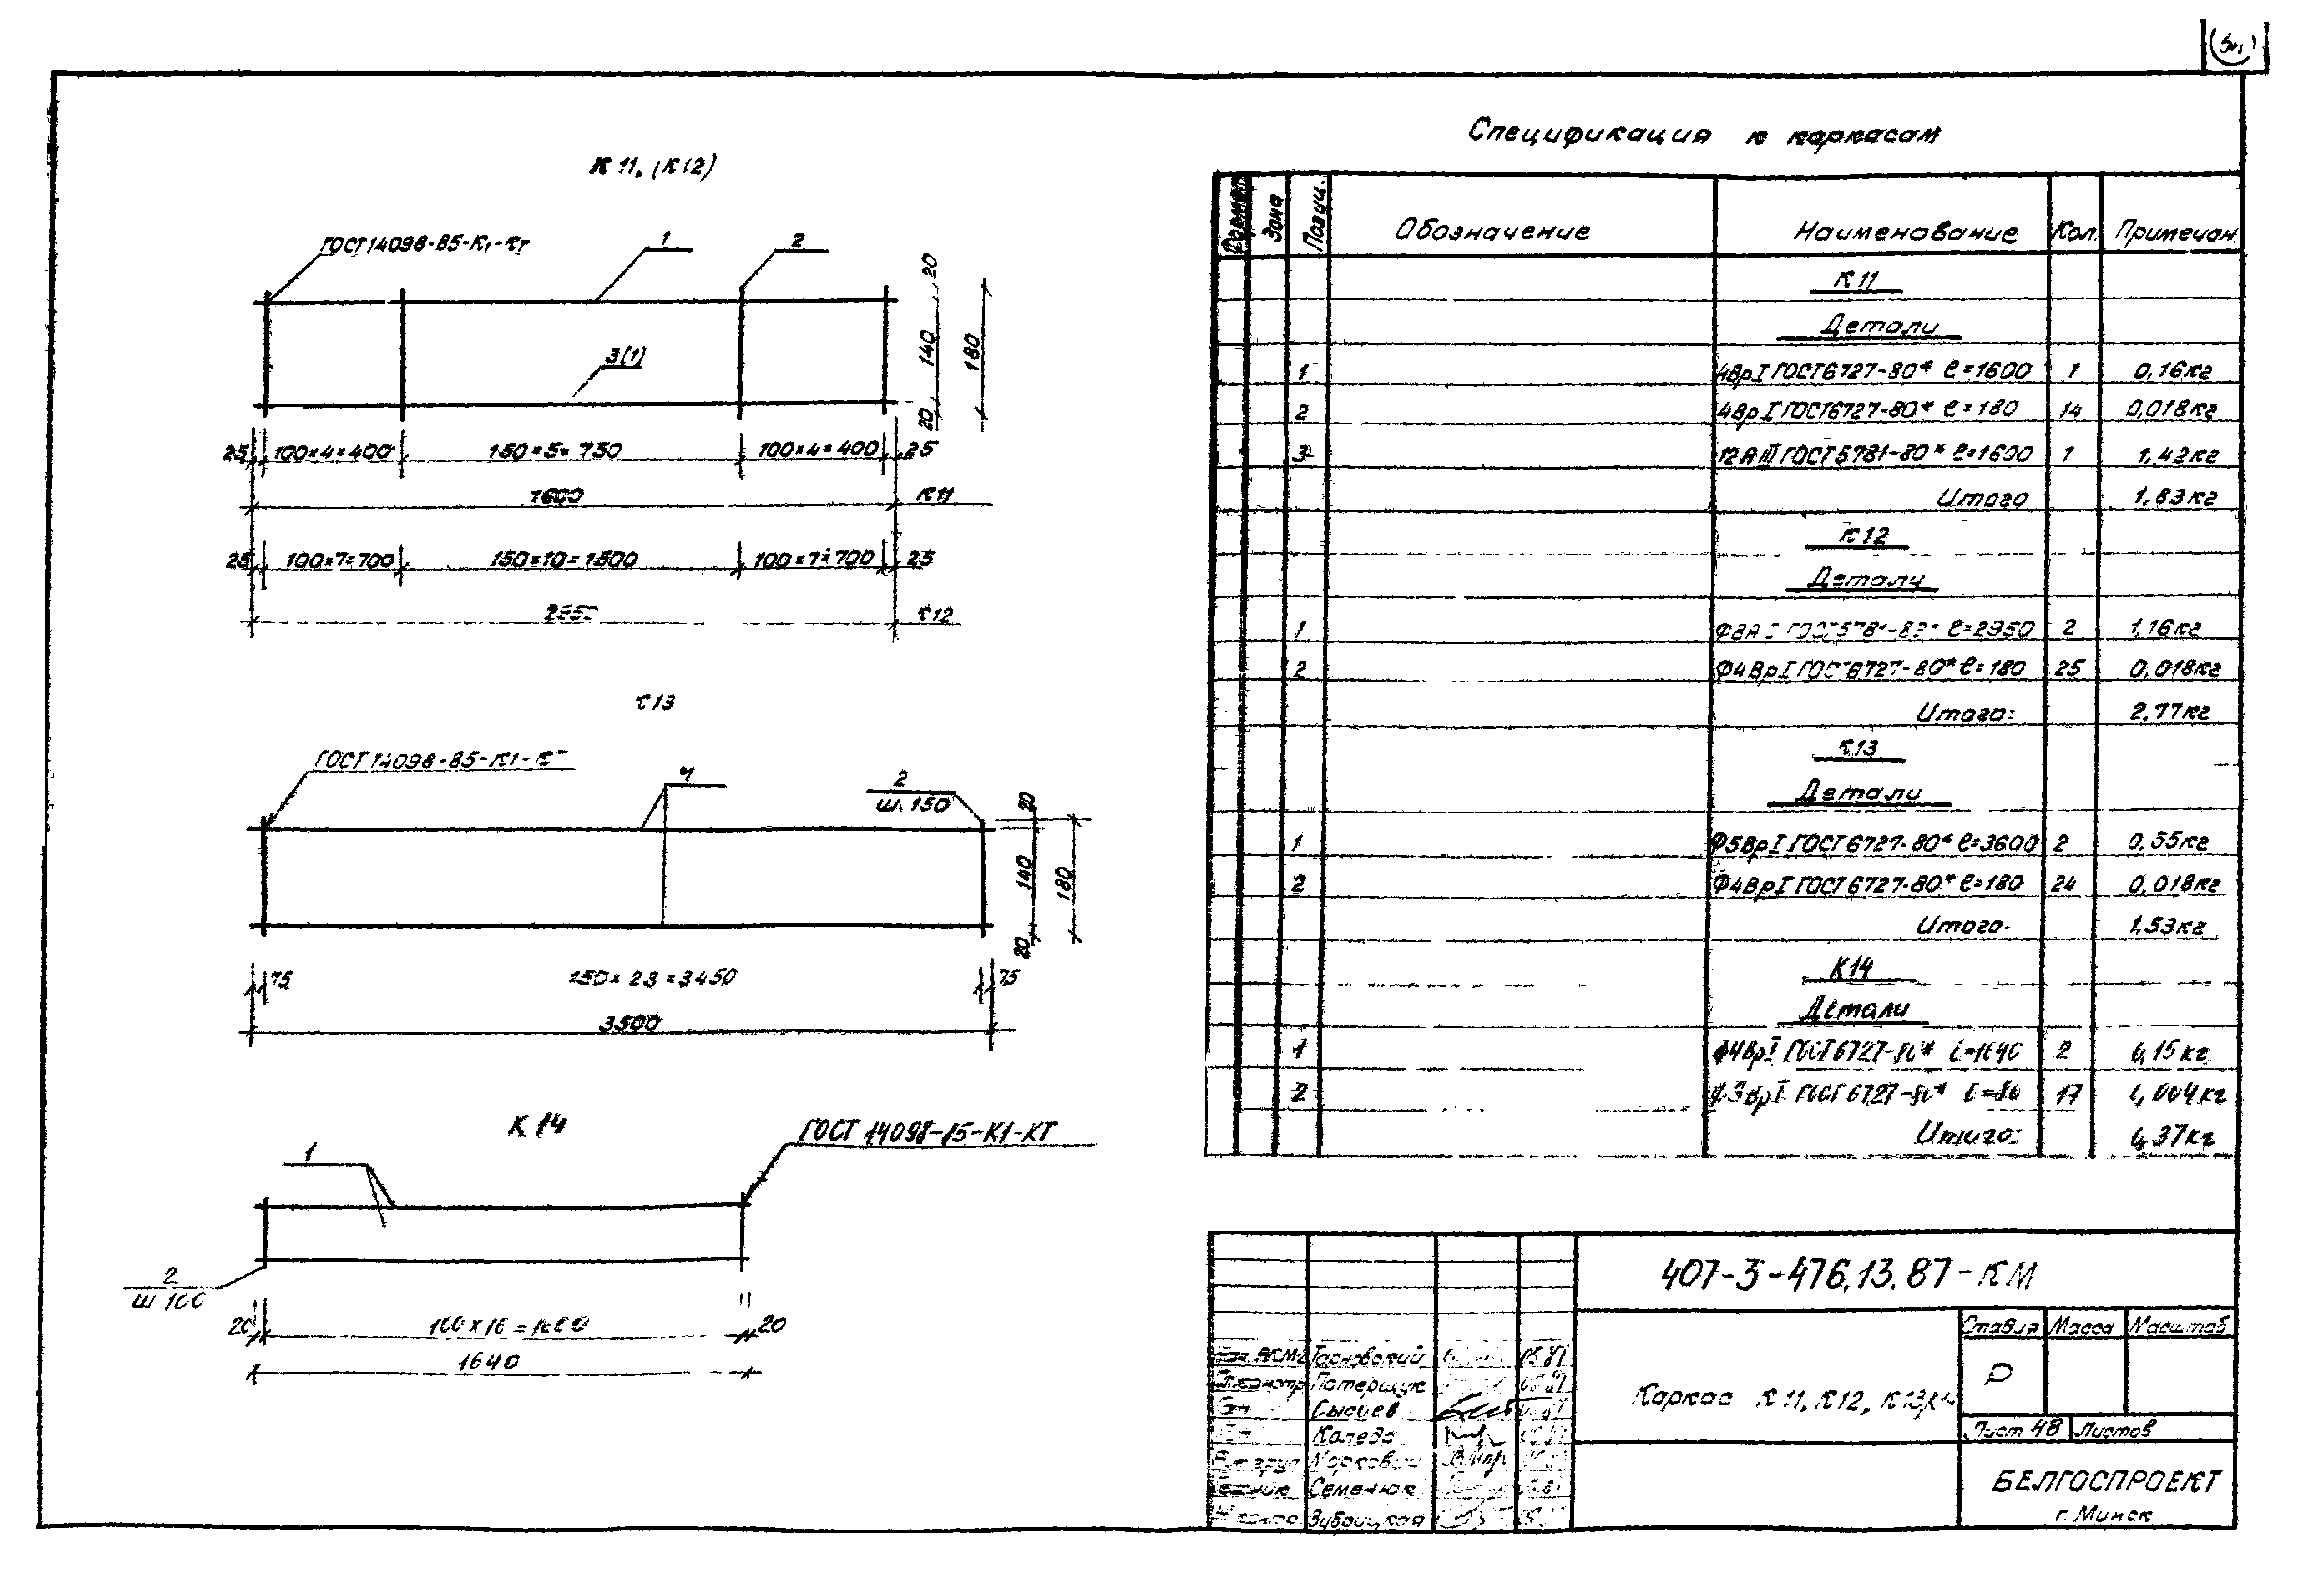 К 11. (К12)
ГОСТ 14098-85-К1-Кт
1
2
3(1)
20
140
20
180
25 100×4=400 150×5=750 100×4=400 25
1600 К11
25 100×7=700 150×10=1500 100×7=700 25
К12
13
ГОСТ 14098-85-К1-К
2
Ш. 150
20
140
20
180
75 150×23=3450 75
3500
К 14
1
ГОСТ 14098-85-К1-КТ
2
Ш 100
20 100×16=1600 20
1640
Спецификация к каркасам
Формат Зона Позиц. Обозначение Наименование Кол. Примечан.
К 11
Детали
1 4ВрI ГОСТ6727-80* ℓ=1600 1 0,16кг
2 4ВрI ГОСТ6727-80* ℓ=180 14 0,018кг
3 12АIII ГОСТ5781-80* ℓ=1600 1 1,42кг
Итого 1,83кг
К 12
Детали
1 ℓ=2950 2 1,16кг
2 Ф4ВрI ГОСТ6727-80* ℓ=180 25 0,018кг
Итого: 2,77кг
К13
Детали
1 Ф5ВрI ГОСТ6727-80* ℓ=3600 2 0,55кг
2 Ф4ВрI ГОСТ6727-80* ℓ=180 24 0,018кг
Итого. 1,53кг
К14
Детали
1 Ф4ВрI ГОСТ6727-80* ℓ=1640 2 0,15кг
2 Ф3ВрI ГОСТ6727-80* ℓ=80 17 0,004кг
Итого: 0,37кг
407-3-476.13.87-КМ
Стадия Масса Масштаб
Тарновский
Гл.констр Патерщук
Р
Каркас К 11, К12, К13,К14
Сысоев
Лист 48 Листов
Рук.груп Маркович
Техник Семенюк
БЕЛГОСПРОЕКТ
Зубрицкая
г. Минск